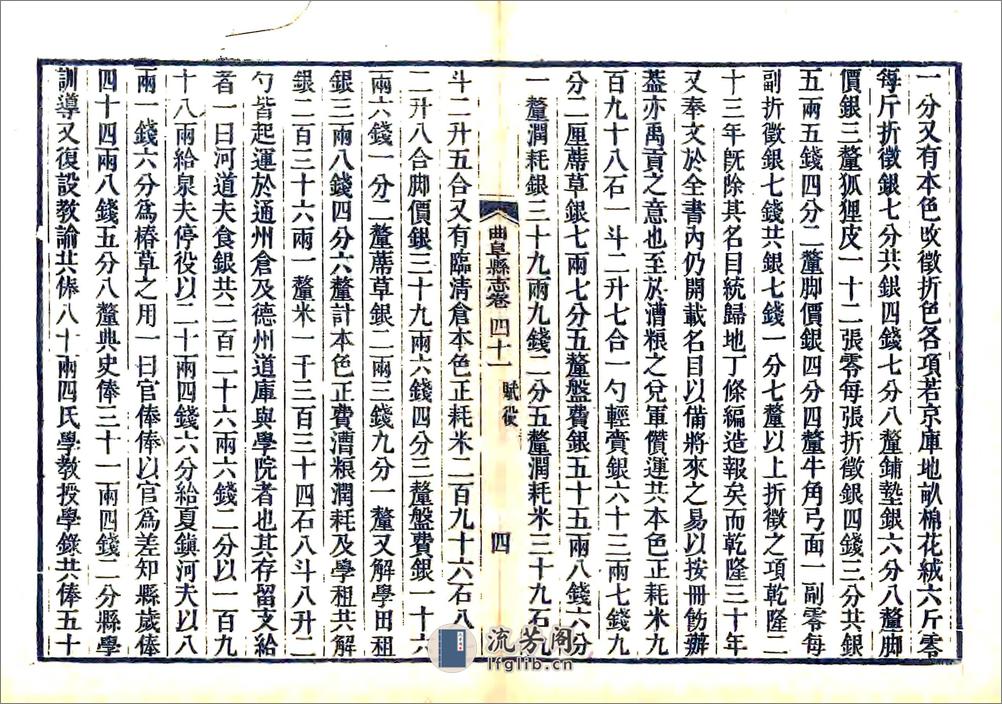 一分又有本色改徵折色各項若京庫地畝棉花絨六斤零
每斤折徵銀七分共銀四錢七分八釐鋪墊銀六分八釐脚
價銀三釐狐狸皮一十二張零每張折徵銀四錢三分共銀
五兩五錢四分二釐脚價銀四分四釐牛角弓面一副零每
副折徵銀七錢共銀七錢一分七釐以上折徵之項乾隆二
十三年旣除其名目統歸地丁條編造報矣而乾隆三十年
又奉文於全書內仍開載名目以備將來之易以按冊飭辦
葢亦禹貢之意也至於漕糧之兌軍儹運共本色正耗米九
百九十八石一斗二升七合一勺輕賫銀六十三兩七錢九
分二厘蓆草銀七兩七分五釐盤費銀五十五兩八錢六分
一釐潤耗銀三十九兩九錢二分五釐潤耗米三十九石九
曲阜縣志卷 四十一 賦役 四
斗二升五合又有臨清倉本色正耗米二百九十六石八
二升八合脚價銀三十九兩六錢四分三釐盤費銀一十六
兩六錢一分二釐蓆草銀二兩三錢九分一釐又解學田租
銀三兩八錢四分六釐計本色正費漕粮潤耗及學租共解
銀二百三十六兩一釐米一千三百三十四石八斗八升二
勺皆起運於通州倉及德州道庫與學院者也其存留支給
者一曰河道夫食銀共二百二十六兩六錢二分以一百九
十八兩給泉夫停役以二十兩四錢六分給夏鎭河夫以八
兩一錢六分爲樁草之用一曰官俸俸以官爲差知縣歲俸
四十四兩八錢五分八釐典史俸三十一兩四錢二分縣學
訓導又復設教諭共俸八十兩四氏學教授學錄共俸五十
流芳阁
lfglib.cn